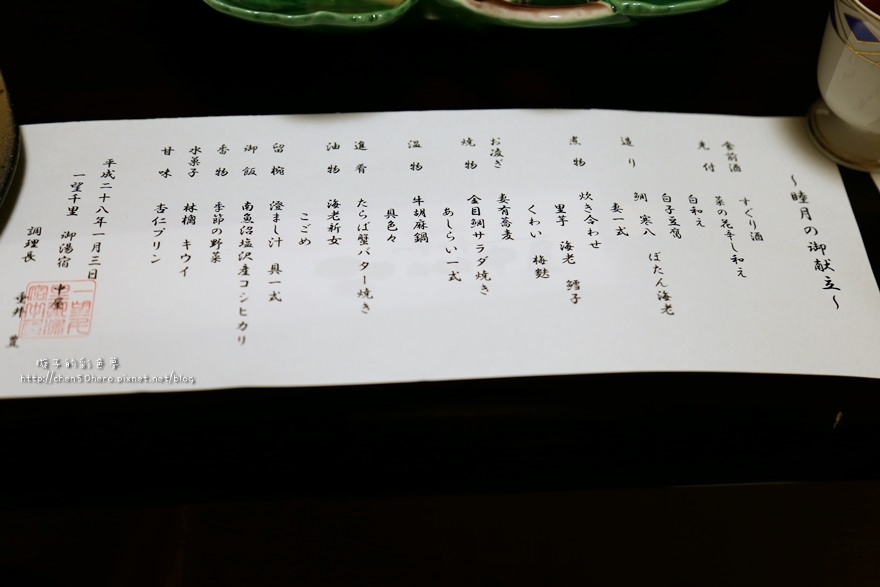 ～睦月の御献立～
食前酒
すぐり酒
先付
菜の花辛し和え
白和え
白子豆腐
造り
鯛 寒八 ぼたん海老
妻一式
煮物
炊き合わせ
里芋 海老 鱈子
くわい 梅麩
お凌ぎ
妻有蕎麦
焼物
金目鯛サラダ焼き
あしらい一式
温物
牛胡麻鍋
具色々
進肴
たらば蟹バター焼き
油物
海老祈女
こごめ
留椀
澄まし汁 具一式
御飯
南魚沼塩沢産コシヒカリ
香物
季節の野菜
水菓子
林檎 キウイ
甘味
杏仁プリン
平成二十八年一月三日
一望千里 御湯宿 中屋
調理長
豊
http://chen50hero.pixnet.net/blog